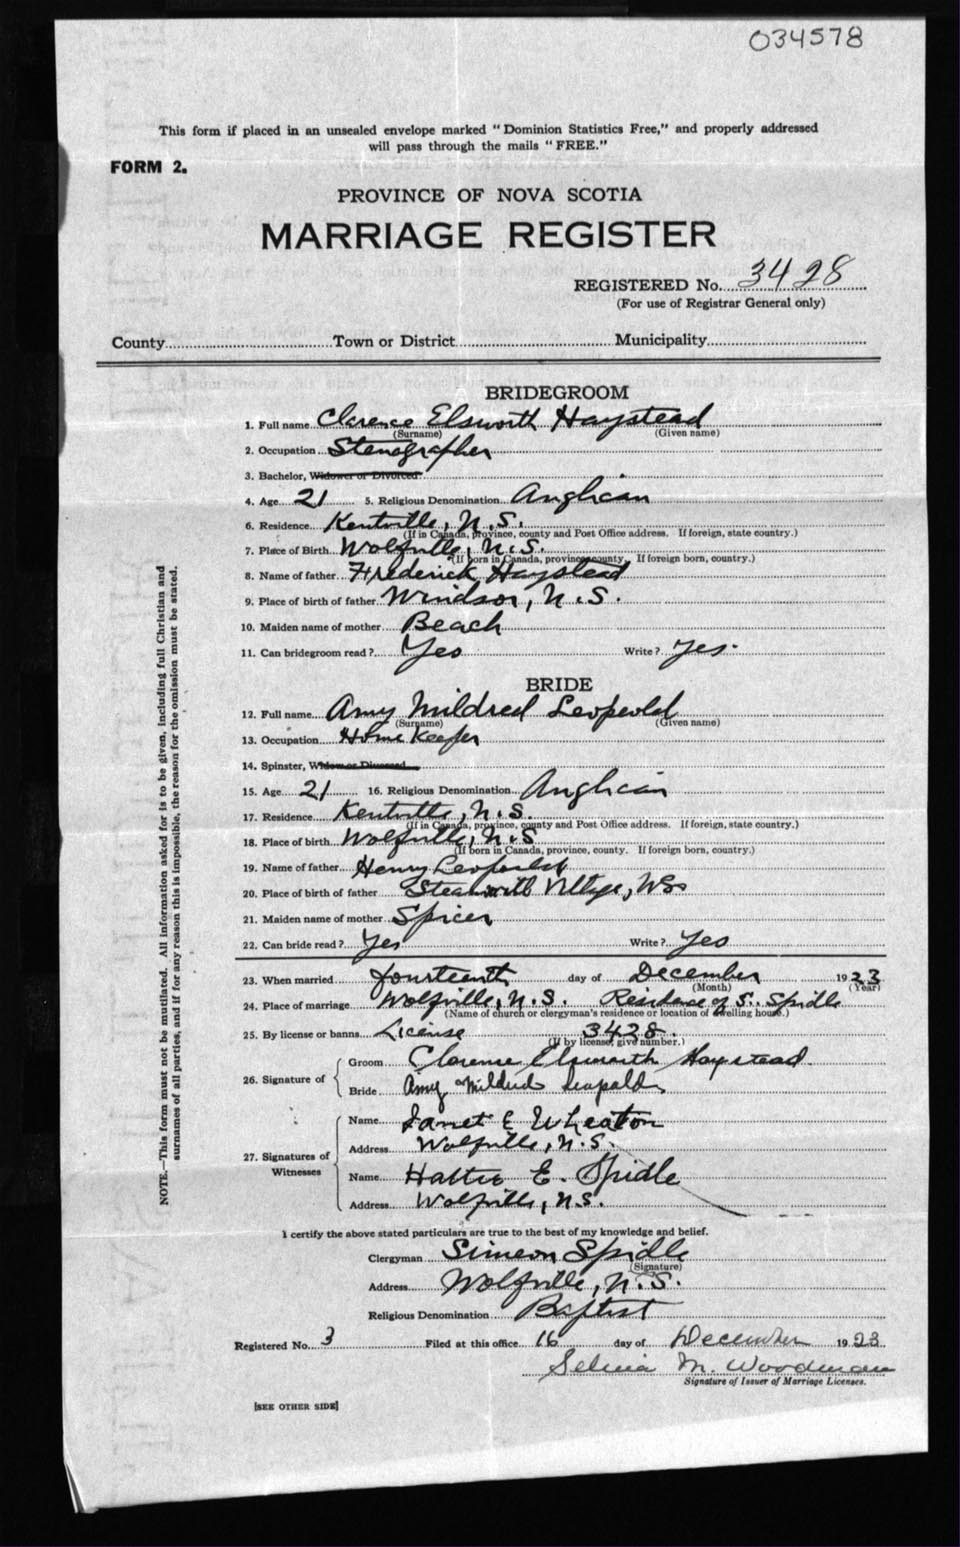 034578
This form if placed in an unsealed envelope marked "Dominion Statistics Free," and properly addressed
will pass through the mails "FREE."
FORM 2.
PROVINCE OF NOVA SCOTIA
MARRIAGE REGISTER
REGISTERED No. 3428
(For use of Registrar General only)
County Town or District Municipality
BRIDEGROOM
1. Full name Clarence Elsworth Haystead
(Surname) (Given name)
2. Occupation Stenographer
3. Bachelor, Widower or Divorced
4. Age 21 5. Religious Denomination Anglican
6. Residence Kentville, N.S.
(If in Canada, province, county and Post Office address. If foreign, state country.)
7. Place of Birth Wolfville, N.S.
(If born in Canada, province, county. If foreign born, country.)
8. Name of father Frederick Haystead
9. Place of birth of father Windsor, N.S.
10. Maiden name of mother Beach
11. Can bridegroom read? Yes Write? Yes.
BRIDE
12. Full name Amy Mildred Leopold
(Surname) (Given name)
13. Occupation Home Keeper
14. Spinster, Widow or Divorced
15. Age 21 16. Religious Denomination Anglican
17. Residence Kentville, N.S.
(If in Canada, province, county and Post Office address. If foreign, state country.)
18. Place of birth Wolfville, N.S
(If born in Canada, province, county. If foreign born, country.)
19. Name of father Henry Leopold
20. Place of birth of father Village,
21. Maiden name of mother Spicer
22. Can bride read? Yes Write? Yes
23. When married fourteenth day of December 1923
(Month) (Year)
24. Place of marriage Wolfville, N.S. Residence of S. Spidle
(Name of church or clergyman's residence or location of dwelling house.)
25. By license or banns License 3428.
(If by license, give number.)
26. Signature of
Groom Clarence Elsworth Haystead
Bride Amy Mildred Leopold
27. Signatures of Witnesses
Name Janet E Wheaton
Address Wolfville, N.S.
Name Hattie E. Spidle
Address Wolfville, N.S.
I certify the above stated particulars are true to the best of my knowledge and belief.
Clergyman Simeon Spidle
(Signature)
Address Wolfville, N.S.
Religious Denomination Baptist
Registered No. 3 Filed at this office 16 day of December 1923
Selina M. Woodman
Signature of Issuer of Marriage Licenses.
[SEE OTHER SIDE]
NOTE.—This form must not be mutilated. All information asked for is to be given, including full Christian and
surnames of all parties, and if for any reason this is impossible, the reason for the omission must be stated.